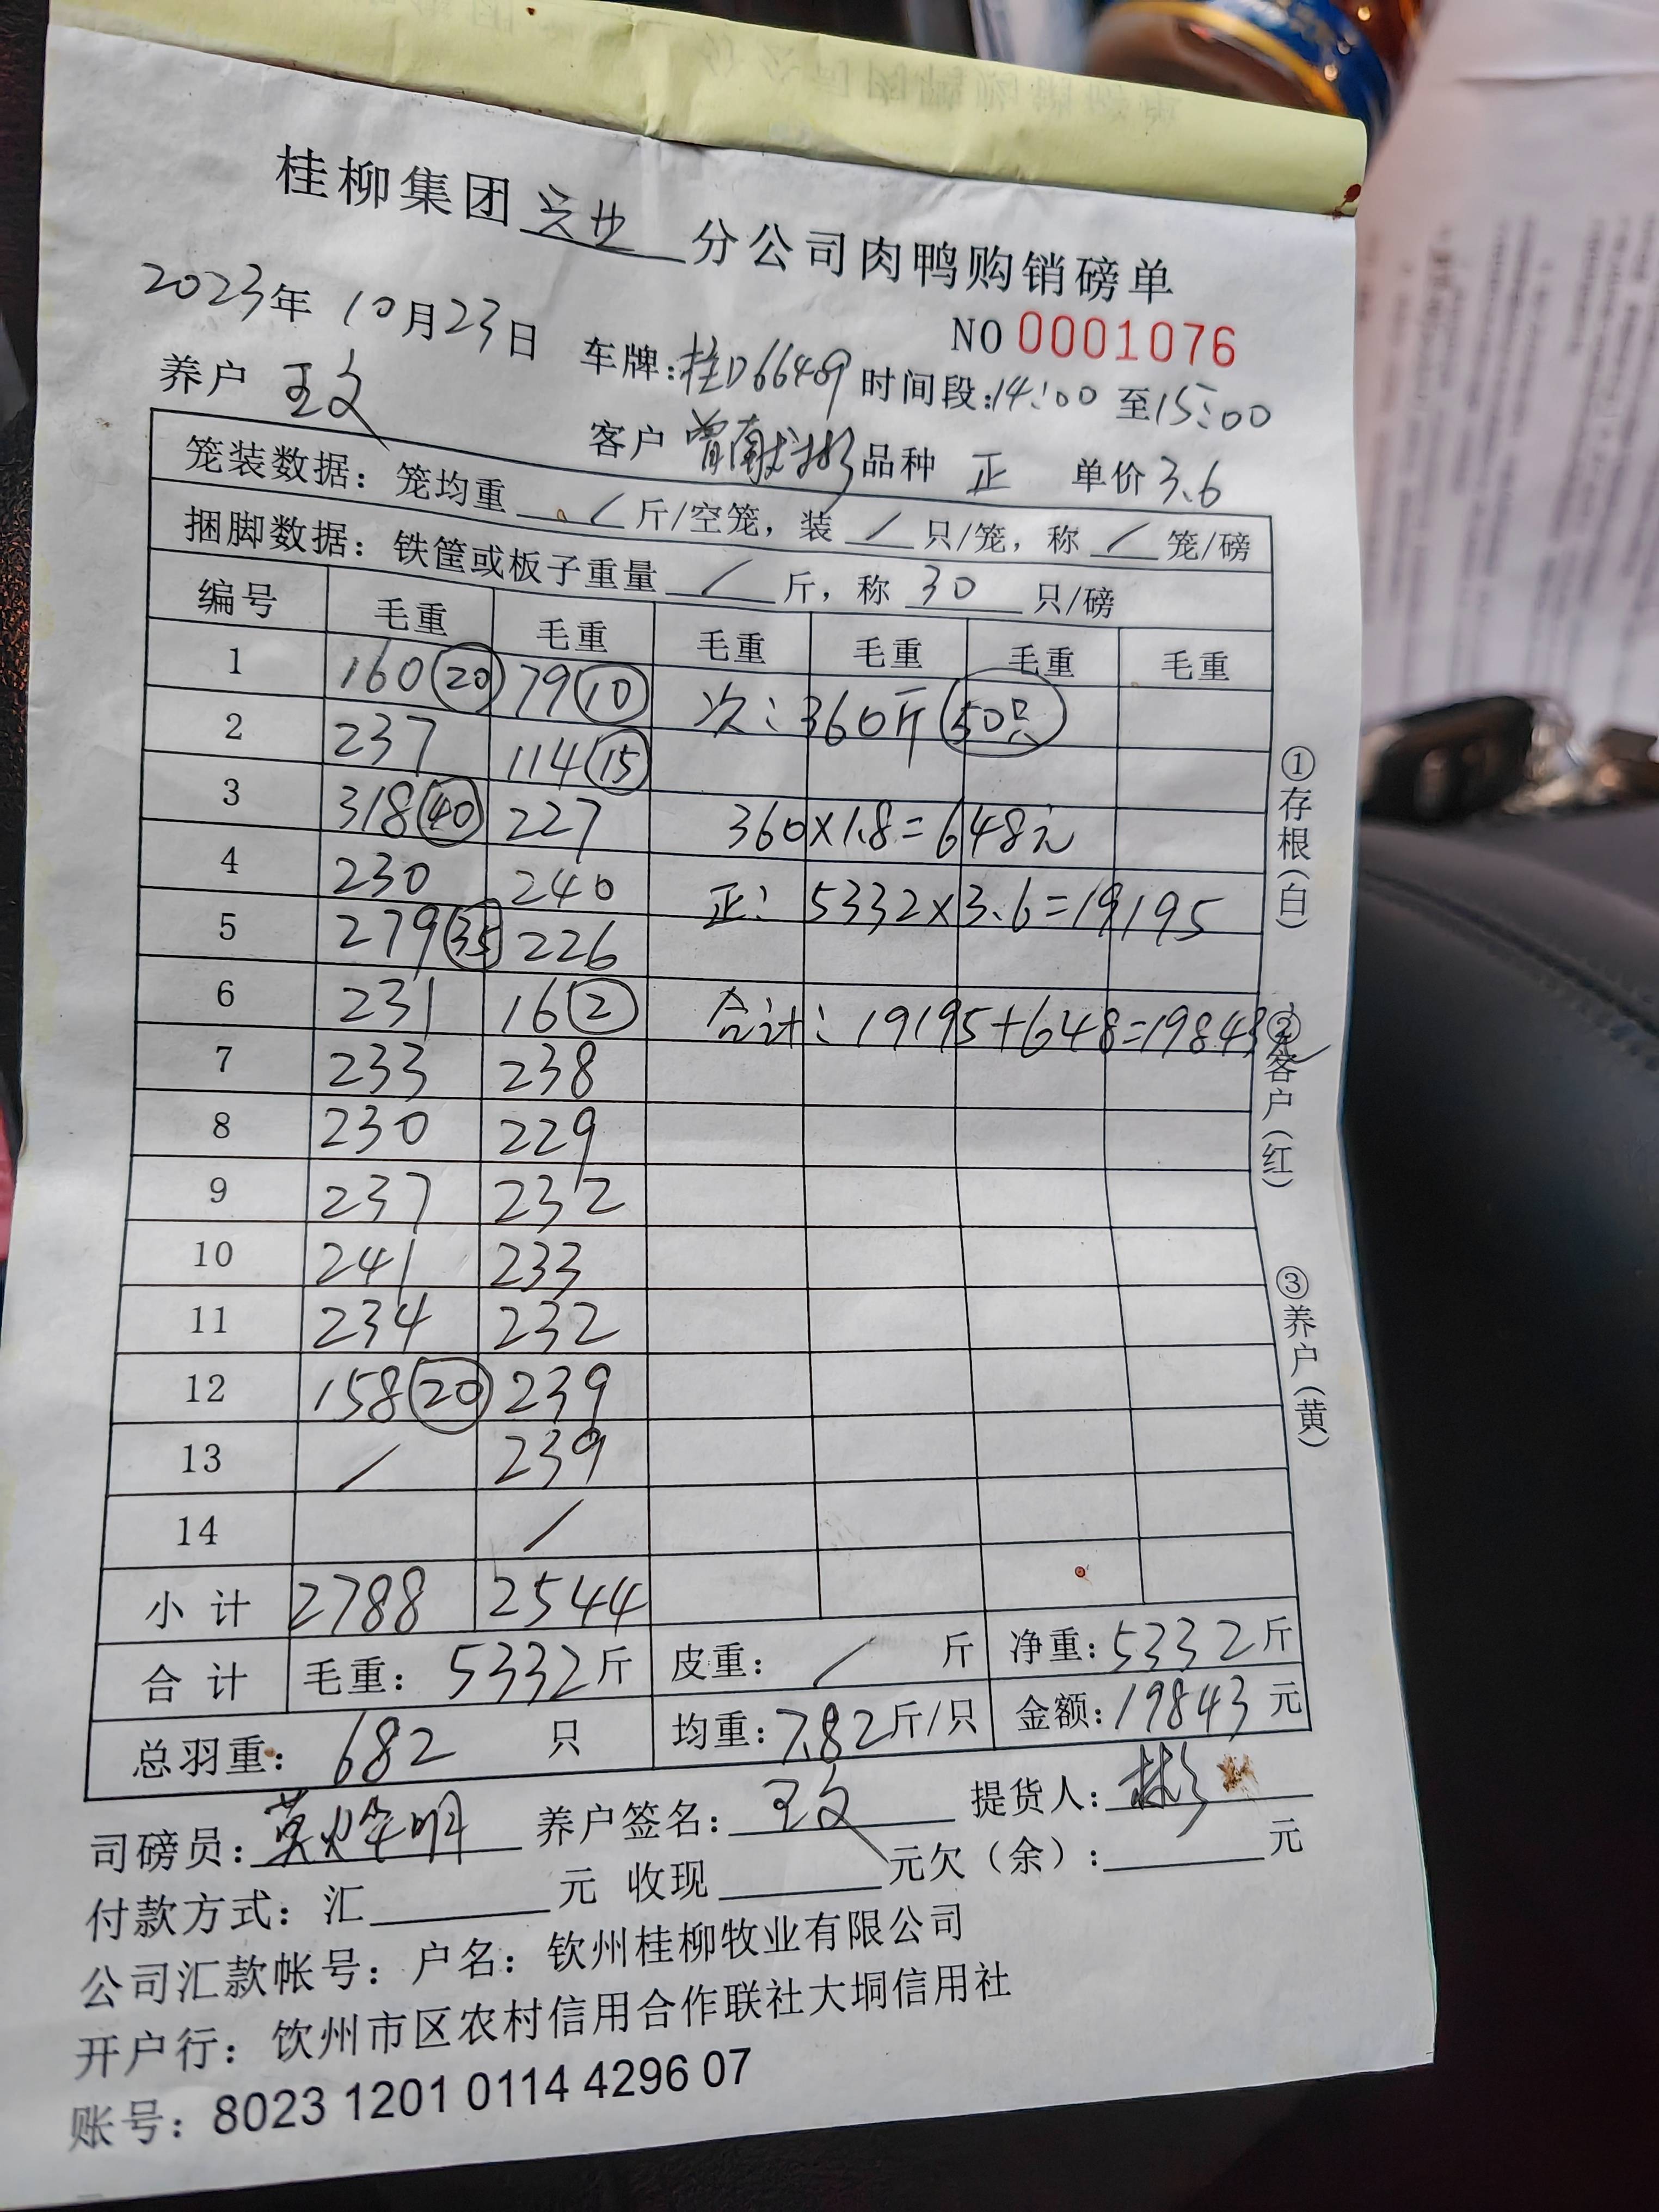 桂柳集团兴业分公司肉鸭购销磅单
NO 0001076
2023年 10月23日 车牌:桂D66489 时间段:14:00 至15:00
养户 王文 客户 曾献彬 品种 正 单价 3.6
笼装数据：笼均重 / 斤/空笼，装 / 只/笼，称 / 笼/磅
捆脚数据：铁筐或板子重量 / 斤，称 30 只/磅
编号 毛重 毛重 毛重 毛重 毛重 毛重
1 160(20) 79(10) 次：360斤(50只)
2 237 114(15)
3 318(40) 227 360×1.8=648元
4 230 240 正：5332×3.6=19195
5 279(35) 226
6 231 16(2) 合计：19195+648=19843元
7 233 238
8 230 229
9 237 232
10 241 233
11 234 232
12 158(20) 239
13 / 239
14 /
小计 2788 2544
合计 毛重：5332斤 皮重：/ 斤 净重：5332斤
总羽重：682 只 均重：7.82斤/只 金额：19843元
司磅员： 养户签名：王文 提货人：彬
付款方式：汇 元 收现 元欠（余）： 元
公司汇款帐号：户名：钦州桂柳牧业有限公司
开户行：饮州市区农村信用合作联社大垌信用社
账号：8023 1201 0114 4296 07
①存根(白)
②客户(红)
③养户(黄)